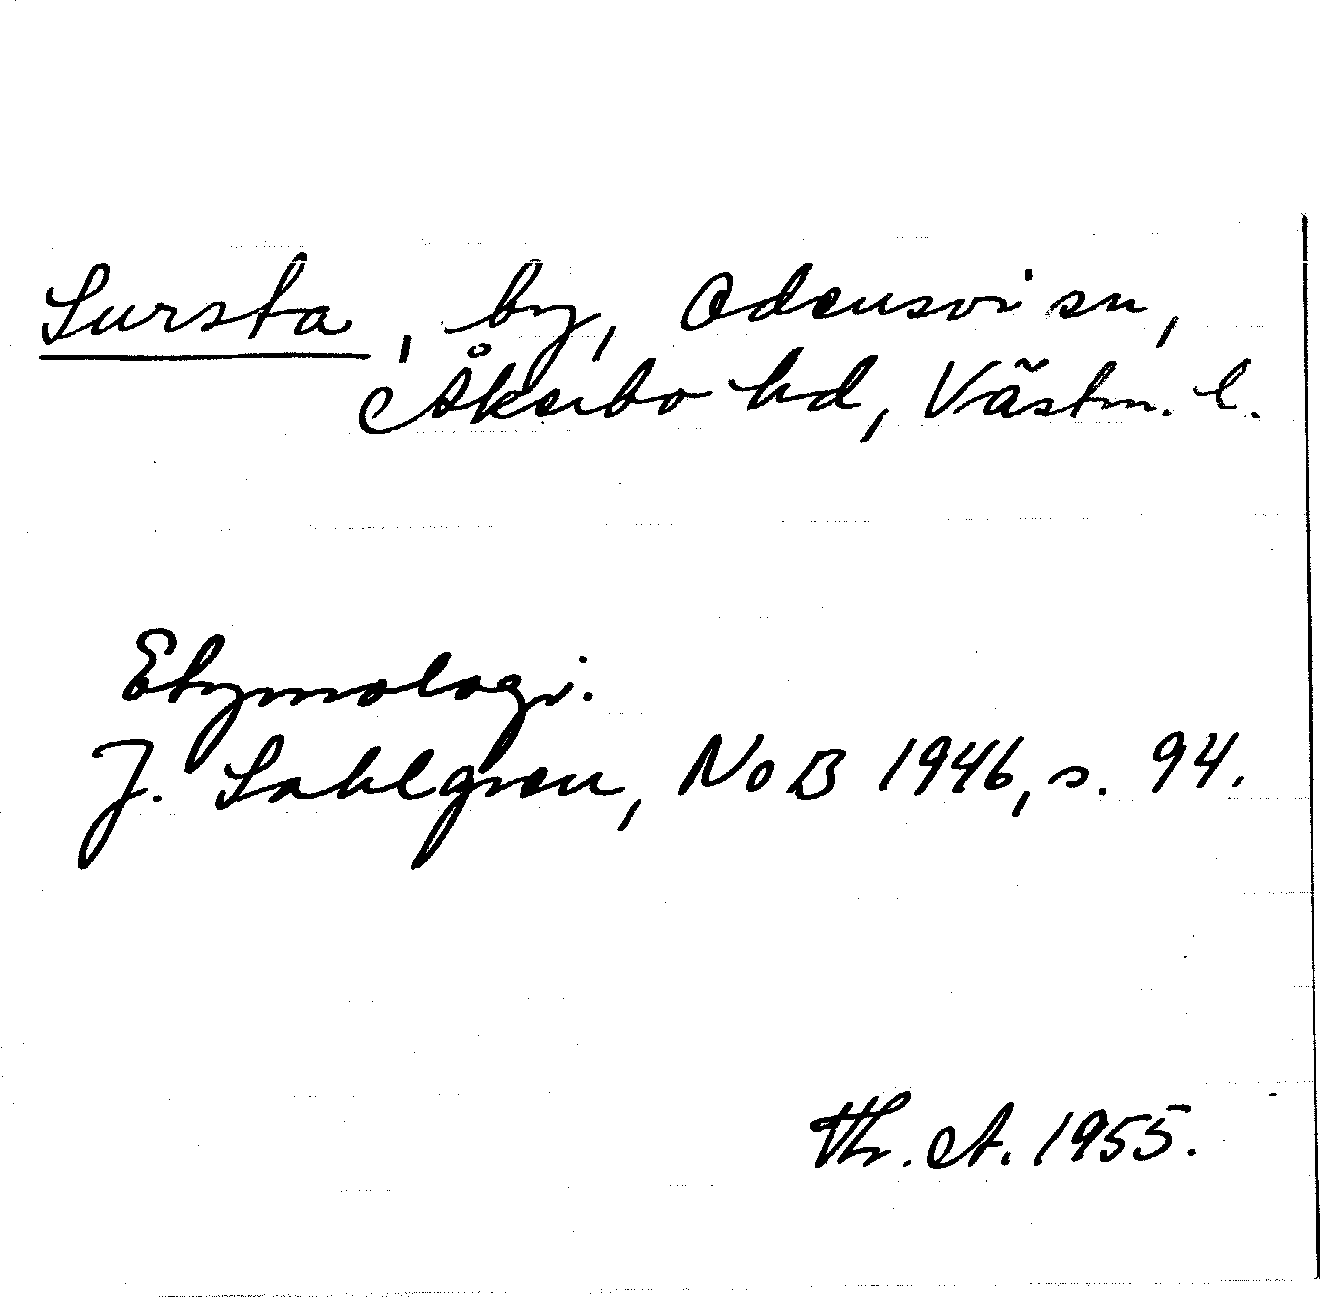 Sursta, by, Odensvi sn,
Åkerbo hd, Västm. l.
Etymologi.
J. Sahlgren, NoB 1946, s. 94.
Th. A. 1955.